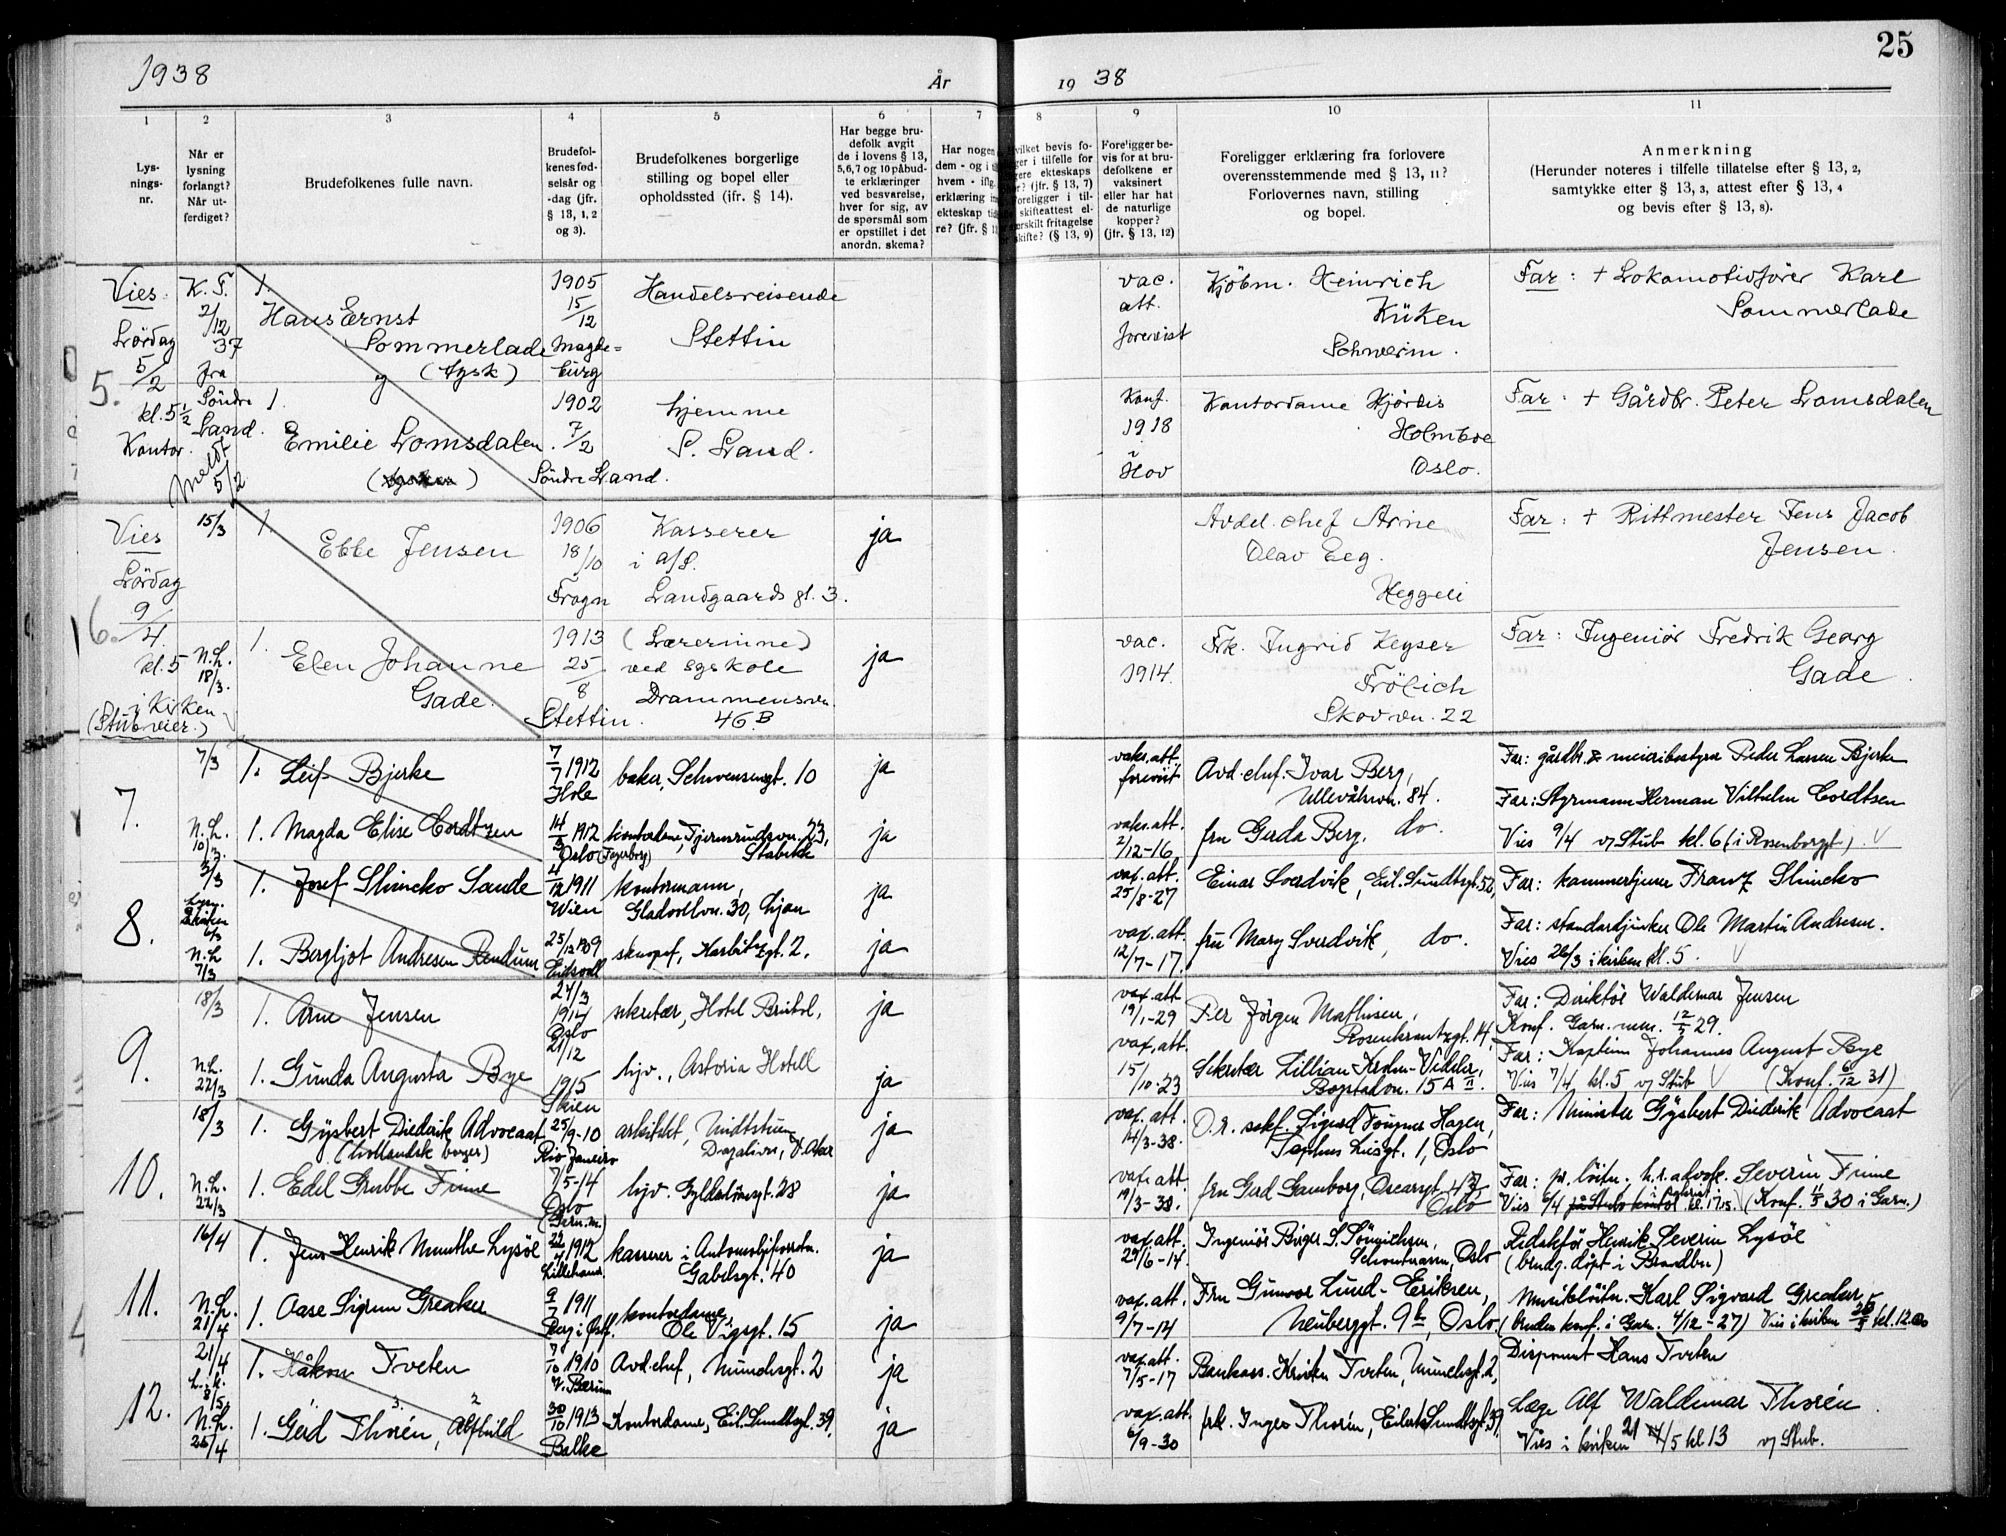 25
1938
År
19 38
1
2
3
4
5
6
7
8
9
10
11
Lys-
nings-
nr.
Når er
lysning
forlangt?
Når ut-
ferdiget?
Brudefolkenes fulle navn.
Brudefol-
kenes fød-
selsår og
-dag (jfr.
§ 13, 1, 2
og 3).
Brudefolkenes borgerlige
stilling og bopel eller
opholdssted (jfr. § 14).
Har begge bru-
defolk avgit
de i lovens § 13,
5,6,7 og 10 påbud-
te erklæringer
ved besvarelse,
hver for sig, av
de spørsmål som
er opstillet i det
anordn. skema?
Har nogen
dem - og i
hvem - ifig.
erklæring
ekteskap
re? (jfr. §
vilket bevis fo-
i tilfelle for
ekteskaps
(jfr. § 13, 7)
Foreligger i til-
skifteattest el-
fritagelse
skifte? (§ 13, 9)
Foreligger be-
vis for at bru-
defolkene er
vaksinert
eller har hat
de naturlige
kopper?
(jfr. § 13, 12)
Foreligger erklæring fra forlovere
overensstemmende med § 13, 11?
Forlovernes navn, stilling
og bopel.
Anmerkning
(Herunder noteres i tilfelle tillatelse efter § 13, 2,
samtykke etter § 13, 3, attest efter § 13, 4
og bevis efter § 13, 8).
5.
Vies
Lørdag
5/2
kl. 5 1/2
Kontor.
K. F.
2/12
37
fra
Søndre
Land.
Meldt
5/2
1.
Hans Ernst
Sommerlade
(tysk)
og
1905
15/12
Magde=
burg
Handelsreisende
Stettin
vac.
att.
forevist
Kjøbm. Heinrich
Küken
Schwerin.
Far: + Lokomotivfører Karl
Sommerlade
1.
Emilie Lomsdalen
1902
7/2
Søndre Land.
hjemme
S. Land.
Konf.
1918
i
Hov
Kontordame Hjørdis
Holmboe
Oslo.
Far: + Gårdbr. Peter Lomsdalen
6.
Vies
Lørdag
9/4
kl. 5
i kirken
(Stub vier.)
15/3
1.
Ebbe Jensen
1906
18/10
Frogn
Kasserer
i A/S.
Landgaards gt. 3.
ja
Avdel. chef Arne
Olav Eeg.
Heggeli
Far: + Rittmester Jens Jacob
Jensen.
N.L.
18/3.
1.
Elen Johanne
Gade.
1913
25/8
Stettin.
(Lærerinne)
ved sykole
Drammensvn.
46 B
ja
vac.
1914
Frk. Ingrid Keyser
Frölich
Skovvn. 22
Far: Ingeniør Fredrik Georg
Gade.
7.
7/3
1. Leif Bjerke
7/7 1912
Hole
baker, Schwensensgt. 10
ja
vaks. att.
forevist
Avd. chef. Ivar Berg,
Ullevålsvn. 84.
Far: gårdbr. & meieribestyrer Peder Larsen Bjerke
N.L.
10/3.
1. Magda Elise Cordtzen
14/3 1912
Oslo (Fagerborg)
kontordame, Fjernrundsvn. 23,
Stabekk
ja
vaks. att.
2/12-16
fru Gerda Berg. do.
Far: Styrmann Herman Vilhelm Cordtsen
Vies 9/4 v/ Stub kl. 6 (i Rosenborggt)
8.
3/3
1. Josef Slincko Sande
4/12 1911
Wien
kontormann,
Gladvollvn. 30, Ljan
ja
vax. att.
25/8-27
Einar Sverdvik, Eil. Sundtsgt. 52,
Far: kammertjener Franz Slincko
N.L.
7/3
1. Bergljot Andresen Rendum
25/12 1909
Eidsvoll
ja
vax. att.
12/7-17.
fru Mary Sverdvik, do.
Far: standardjunker Ole Martin Andresen.
Vies 26/3 i kirken kl. 5.
9.
18/3
1. Arne Jensen
24/3
1914
Oslo
sekretær, Hotel Bristol,
ja
vax. att
19/1-29
Per Jörgen Mathisen,
Rosenkrantzgt. 14,
Far: Direktör Waldemar Jensen
Konf. Garn. men. 12/5 29.
N.L.
22/3
1. Gunda Augusta Bye
21/12
1915
Skien
hjv., Astoria Hotell
ja
vax. att.
15/10-23
Sekretær Lillian Krohn-
15 A II.
Far: Kaptein Johannes August Bye
Vies 7/4 kl. 5 v/ Stub (Konf. 6/12 31)
10.
18/3
1. Gijsbert Diederik Advocaat
(hollandsk borger)
25/9-10
Rio Janeiro
arkitekt,
ja
vax. att.
14/3-38.
O.r. sakf. Sigurd Hagen,
1, Oslo
Far: Minister Gijsbert Diederik Advocaat
N.L.
22/3
1. Edel Grubbe Finne
7/5-14
Oslo
(Garn. m.)
hjv. Gyldenløvesgt. 28
ja
vax. att
19/3-38.
fru Gerd Gamborg, Oscarsgt. 43,
Oslo
Far: pr. löitn. h.r. advok. Severin Finne
Vies 6/4 kl. 17.15. (Konf. 1/5 30 i Garn.)
11.
16/4
1. Jens Henrik Munthe Lysöe
1912
Lillehamr.
kasserer i Automobilforretn.
Gabelsgt. 40
ja
vax. att.
29/6-14
Ingeniör Birger S. Sönnichsen,
Oslo
Redaktör Henrik Severin Lysöe
(brudg. döpt i Brandbu)
N.L.
21/4
1. Aase Sigrun Greaker
9/7 1911
Berg i Østf.
kontordame
Ole Vigsgt. 15
ja
vax. att.
9/7-14
Fru Gunvor Lund-Eriksen,
Neuberggt. 9 b, Oslo.
Musiklöitn. Karl Sigvard Greaker
(bruden konf. i Garn. 4/12-27) Vies i kirken kl. 12.00
12.
21/4
1. Håkon Tveten
7/10 1910
V. Bærum
Avd. chef, Munchsgt. 2
ja
vax. att.
7/5-17
Bankass. Kristen Tveten, Munchsgt. 2,
Disponent Hans Tveten
N.L.
25/4
3. 2
1. Gerd Thorén, Alfhild
30/10 1913
Balke
Kontordame, Eil. Sundtsgt. 39,
ja
vax. att.
6/9-30
frk. Inger Thorén, Eilert Sundtsgt. 39,
Læge Alf Waldemar Thorén
Vies i kirken 21/5 kl 13 v/ Stub.